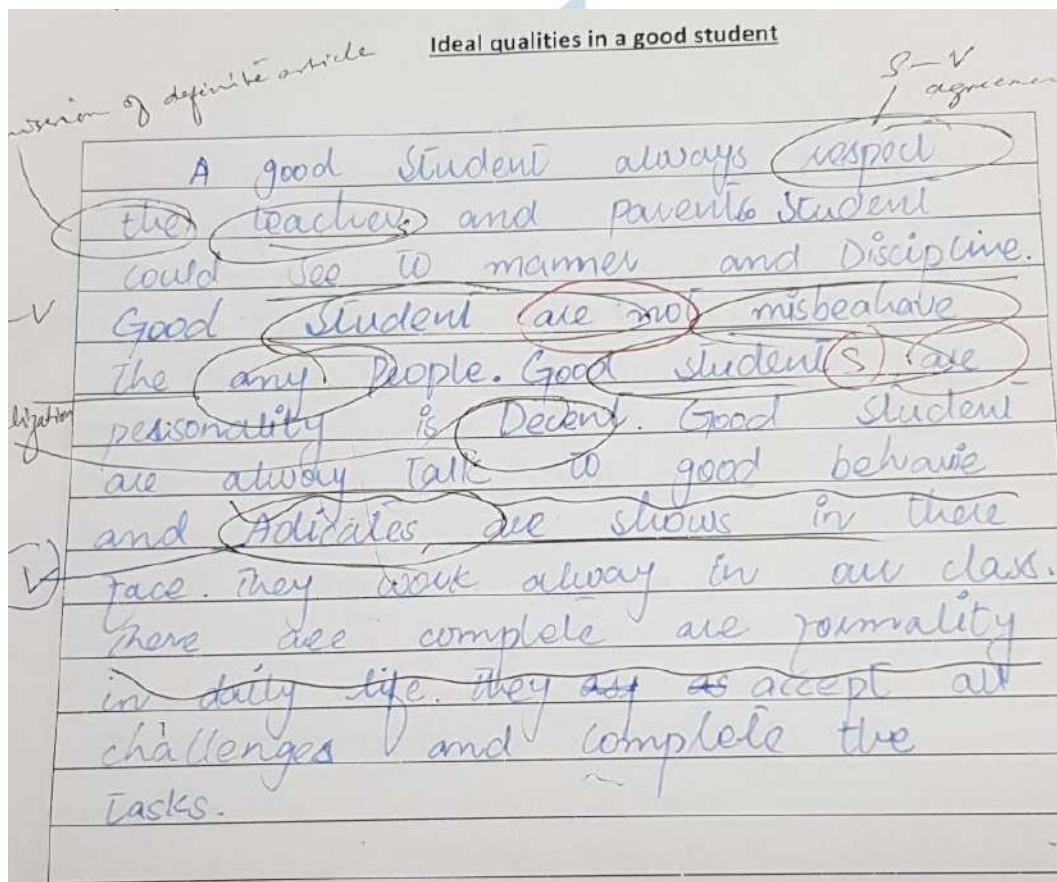 Ideal qualities in a good student
of definite article
S-V
A good student always respect
the teachers and parents student
could see to manner and Discipline.
-V
Good student are not misbeahave
the any People. Good students are
lization
personality is Decent. Good student
are alway Talk to good behavie
and are shows in there
V
face. They work alway in our class.
There are complete are formality
in daily life. they as accept all
challenges and complete the
Tasks.